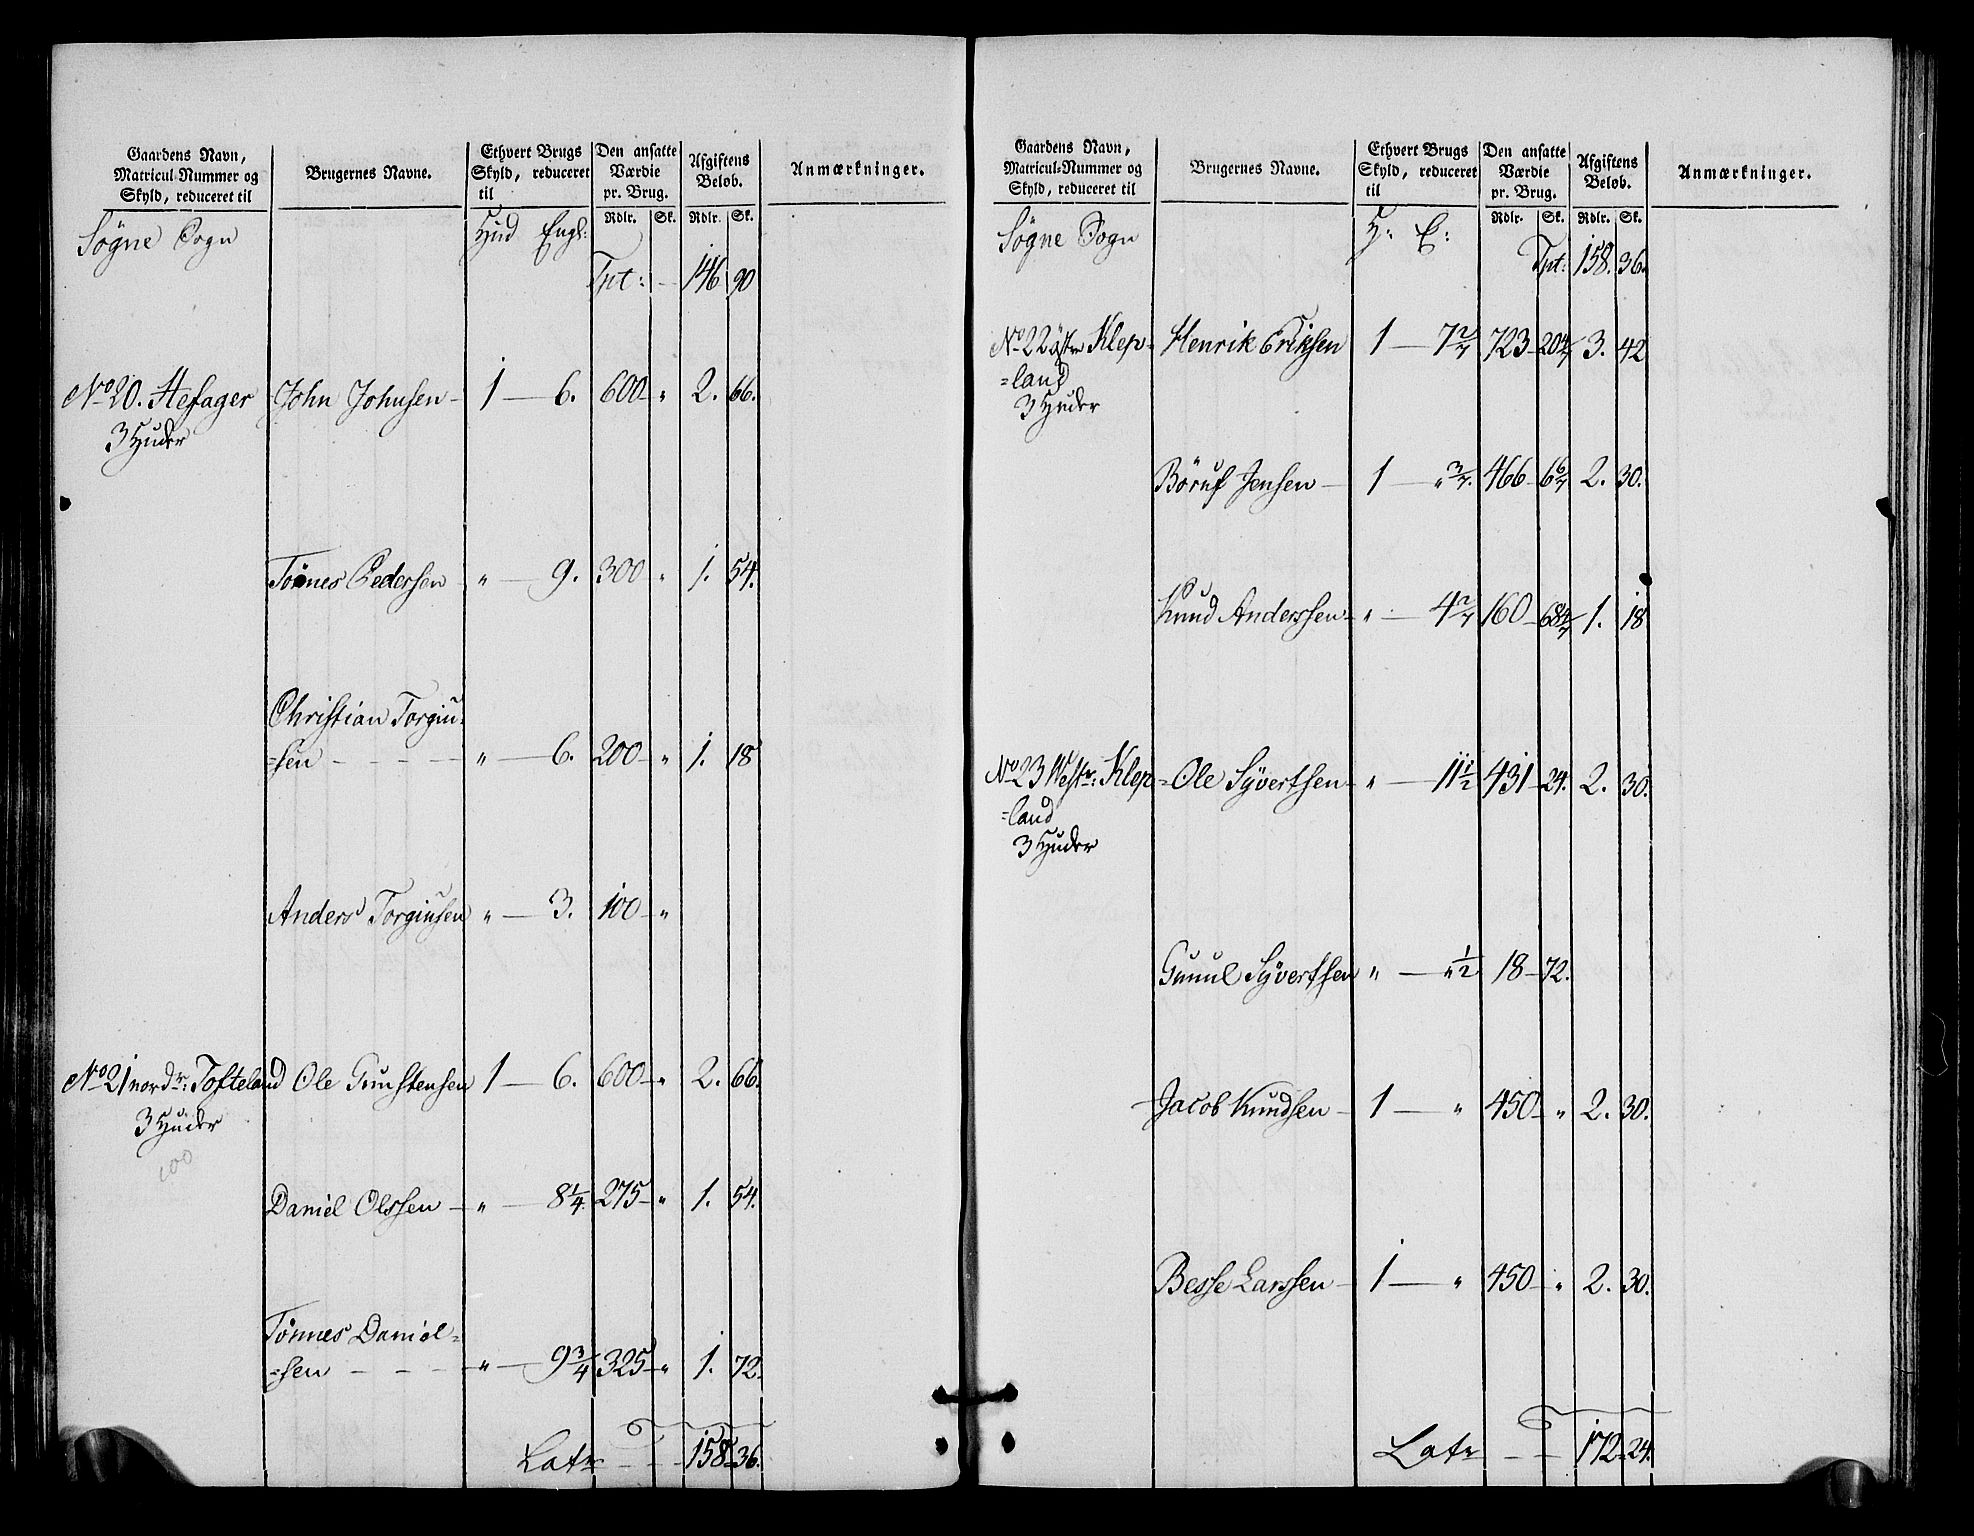 Gaardens Navn, Matricul-Nummer og Skyld, reduceret til | Brugernes Navne. | Ethvert Brugs Skyld, reduceret til | Den ansatte Værdie pr. Brug. | Afgiftens Beløb. | Anmærkninger.
Rdlr. Sk. Rdlr. Sk.
Søgne Sogn Hud Engl:
Tpt: — 146 90
No 20. Hefager John Johnsen — 1 — 6. 600 — " 2. 66.
3 Huder
Tönnes Pedersen " — 9. 300 " 1. 54.
Christian Torgiu-
=sen — — — — " — 6. 200 — " 1. 18
Anders Torgiusen " — 3. 100 — "
No 21 nordr: Tofteland Ole Gunstensen 1 — 6. 600 — " 2. 66.
3 Huder
100
Daniel Olssen — " — 8 1/4. 275 — " 1. 54.
Tönnes Daniel=
=sen — — — " — 9 3/4 325 — " 1. 72.
Latr — — 158 36.
Gaardens Navn, Matricul-Nummer og Skyld, reduceret til | Brugernes Navne. | Ethvert Brugs Skyld, reduceret til | Den ansatte Værdie pr. Brug. | Afgiftens Beløb. | Anmærkninger.
Rdlr. Sk. Rdlr. Sk.
Søgne Sogn H: E:
Tpt: 158. 36.
No 22 östre Klep= Henrik Eriksen 1 — 7 2/7 723 — 20 4/7 3. 42
=land
3 Huder
Böruf Jensen — 1 — " 3/7. 466 — 6 6/7 2. 30.
Knud Anderssen — " — 4 2/7 160 — 68 4/7 1. 18
No 23 Westr: Klep= Ole Syvertsen — " — 11 1/2 431 — 24. 2. 30.
=land
3 Huder
Gunul Syvertsen " — " 1/2 18 — 72.
Jacob Knudsen — 1 — " 450 — " 2. 30.
Besse Larssen — 1 — " 450 — " 2. 30.
Latr — — 172 24.